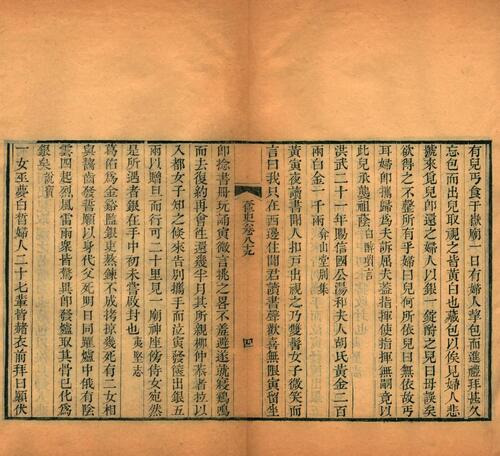 有兒丐食于嶽廟一日有婦人挈包而進禮拜甚久
忘包而出兒取視之皆黃白也藏包以俟見婦人悲
號來覓兒卽還之婦人以銀一錠酹之兒曰毋誤矣
欲得之不整所有乎婦曰兒何所依兒曰無依故丐
耳婦卽攜歸爲夫訴屈夫葢指揮使指揮無嗣竟以
此兒承襲祖蔭 白醉瑣言
洪武二十一年賜信國公湯和夫人胡氏黃金二百
兩白金一千兩 弇山堂別集
黃寅夜讀書聞人扣戸出視之乃雙鬟女子微笑而
言曰我只在西邊住聞君讀書聲歡喜無限寅留坐
奩史卷八十九 四
卽捻書冊玩誦寅微言挑之畧不羞避遂就寢鷄鳴
而去復約再會往還幾半月其所親柳仲恭者拉以
入都女子知之候來告別攜手而泣寅發篋出銀五
兩以贈旦而行可二十里見一廟神座傍侍女宛然
是所遇者銀在手中初未嘗啟封也 夷堅志
葛佑爲金谿監銀吏熬鍊不成拷掠幾死有二女相
與齧齒發誓願以身代父死明日同躍爐中俄有陰
雲四起烈風雷雨衆皆驚異卽發爐取其骨已化爲
銀矣
一女巫夢白晳婦人二十七輩皆赭衣前拜曰願伏